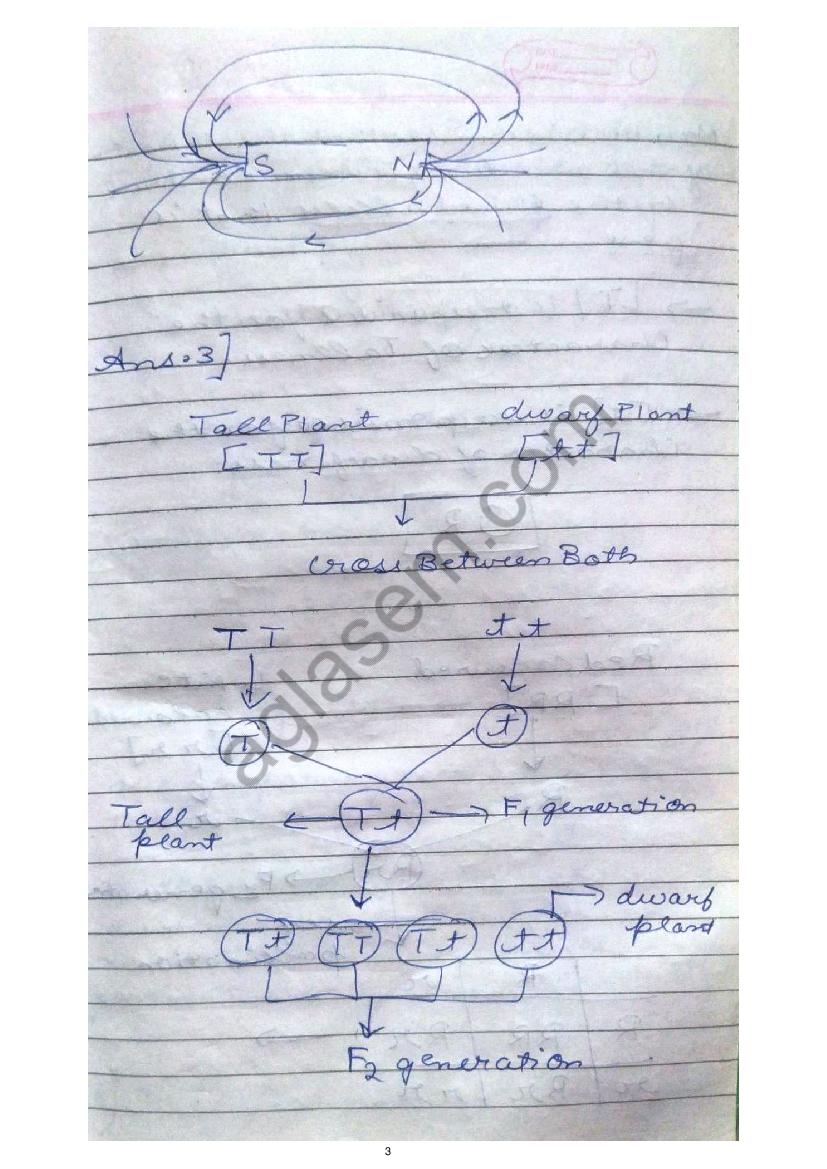 S N
Ans.3]
Tall Plant dwarf Plant
[TT] [tt]
cross Between Both
TT tt
T t
Tall plant Tt F1 generation
Tt TT Tt tt dwarf plant
F2 generation
aglasem.com
3